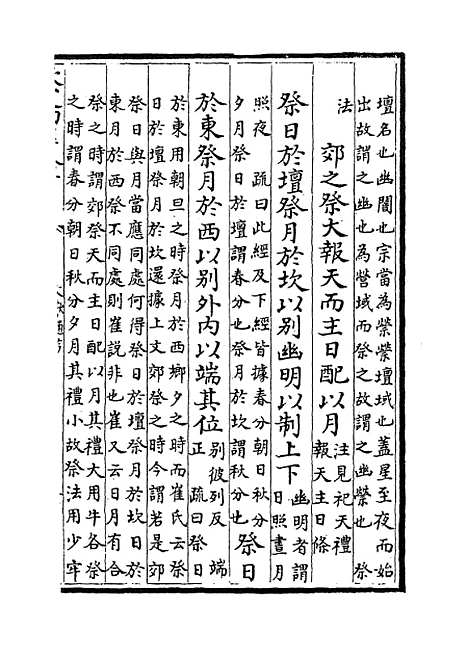 壇名也幽闇也宗當為禜禜壇域也蓋星至夜而始
出故謂之幽也為營域而祭之故謂之幽禜也 祭
法
郊之祭大報天而主日配以月
注見祀天禮
報天主日條
祭日於壇祭月於坎以别幽明以制上下
幽明者謂
日照晝月
照夜 疏曰此經及下經皆據春分朝日秋分
夕月祭日於壇謂春分也祭月於坎謂秋分也
祭日
於東祭月於西以别外内以端其位
别彼列反 端
正 疏曰祭日
於東用朝旦之時祭月於西鄉夕之時而崔氏云祭
日於壇祭月於坎還據上文郊祭之時今謂若是郊
祭日與月當應同處何得祭日於壇祭月於坎日於
東月於西祭不同處則崔說非也崔又云日月有合
祭之時謂郊祭天而主日配以月其禮大用牛各祭
之時謂春分朝日秋分夕月其禮小故祭法用少牢